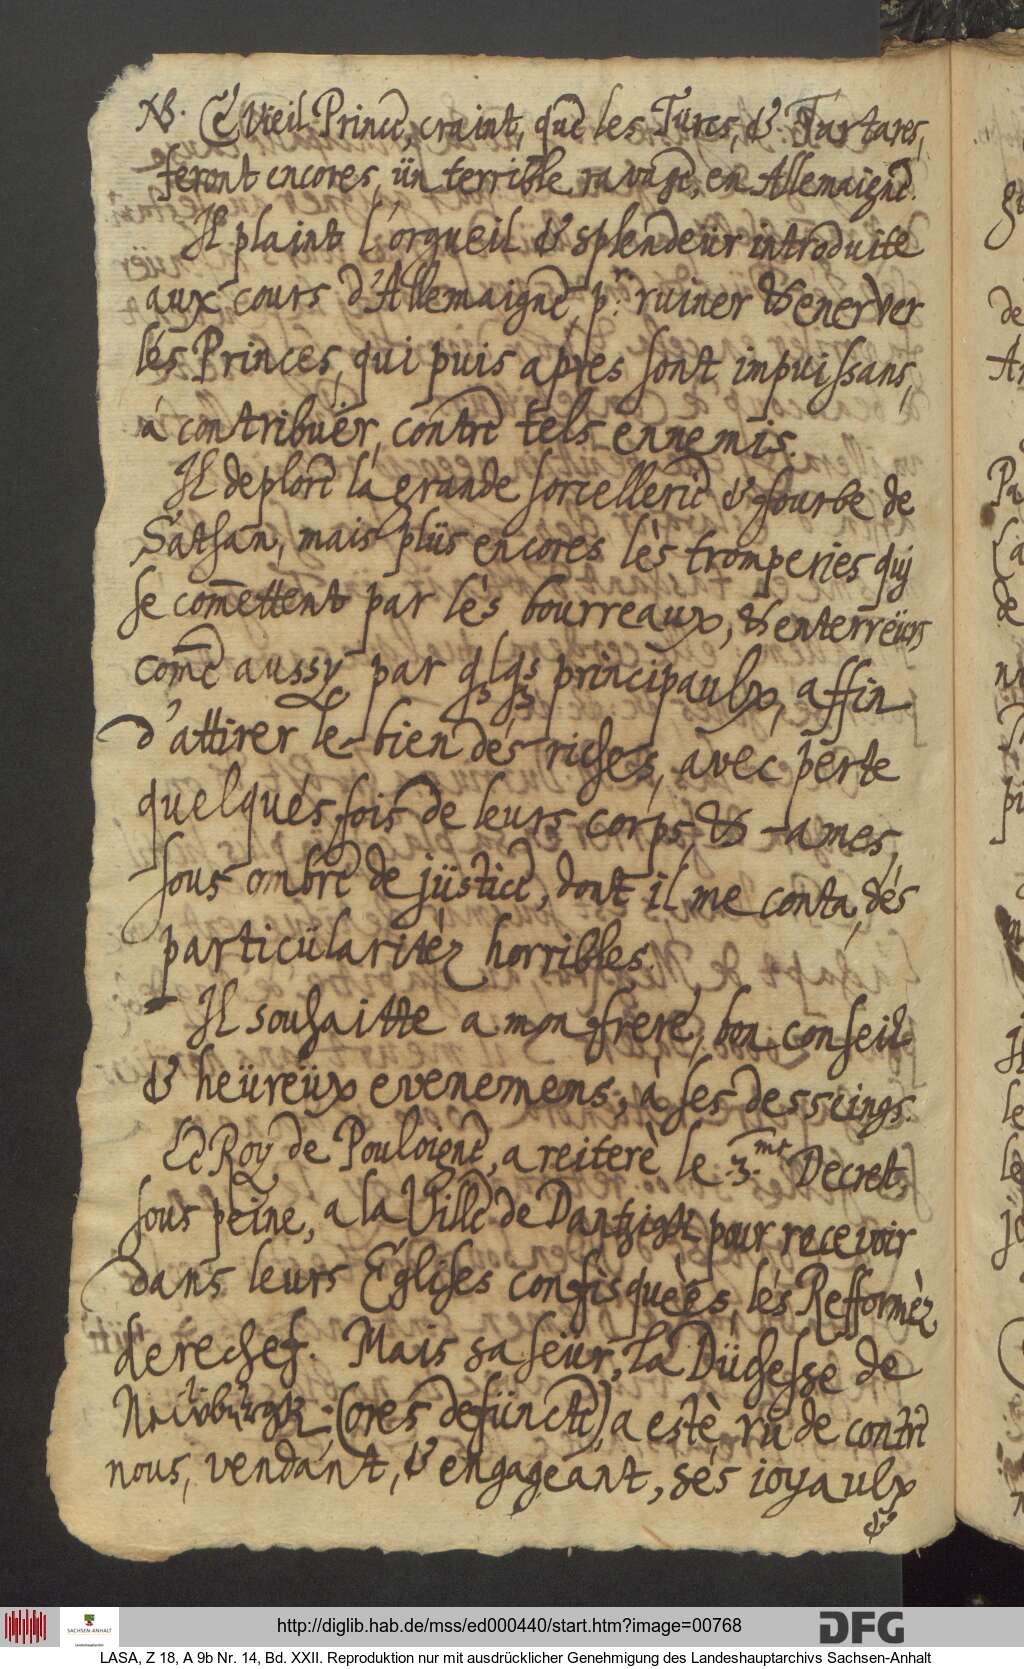 NB. Cè Vieil Prince, craint, que les Turcs, & Tartares,
feront encores, ün terrible ravage, en Allemaigne.
Il plaint l'orgueil & splendeür introduite
aux cours d'Allemaigne, p.r ruiner & enerver
lés Princes, qui puis apres sont impuissans,
á contribuër, contre tels ennemis.
Il deplore la grande sorcellerie & fourbe de
Sathan, mais plüs encores lès tromperies quj
se com̅ettent par lès bourreaux, & enterreürs
com̅e aussy par qlqs principaulx, affin
d'attirer le bien dés riches, avec perte
quelqués fois de leurs corps, & ames,
sous ombre de jüstice, dont il me conta, dés
particülaritéz horribles.
Il souhaitte a mon frere, bon conseil
& heüreüx evenemens, à ses desseings.
Le Roy de Pouloigne, a reiterè le .3.me Decret,
sous peine, a la Ville de Dantzigk pour recevoir
dans leurs Eglises confisquèes, lés Refformèz
derechef. Mais sa seür, la Düchesse de
Newburgk: (ores defüncte), a estè rude contre
nous, vendant, & engageant, sés joyaulx
&
http://diglib.hab.de/mss/ed000440/start.htm?image=00768
SACHSEN-ANHALT
DFG
LASA, Z 18, A 9b Nr. 14, Bd. XXII. Reproduktion nur mit ausdrücklicher Genehmigung des Landeshauptarchivs Sachsen-Anhalt